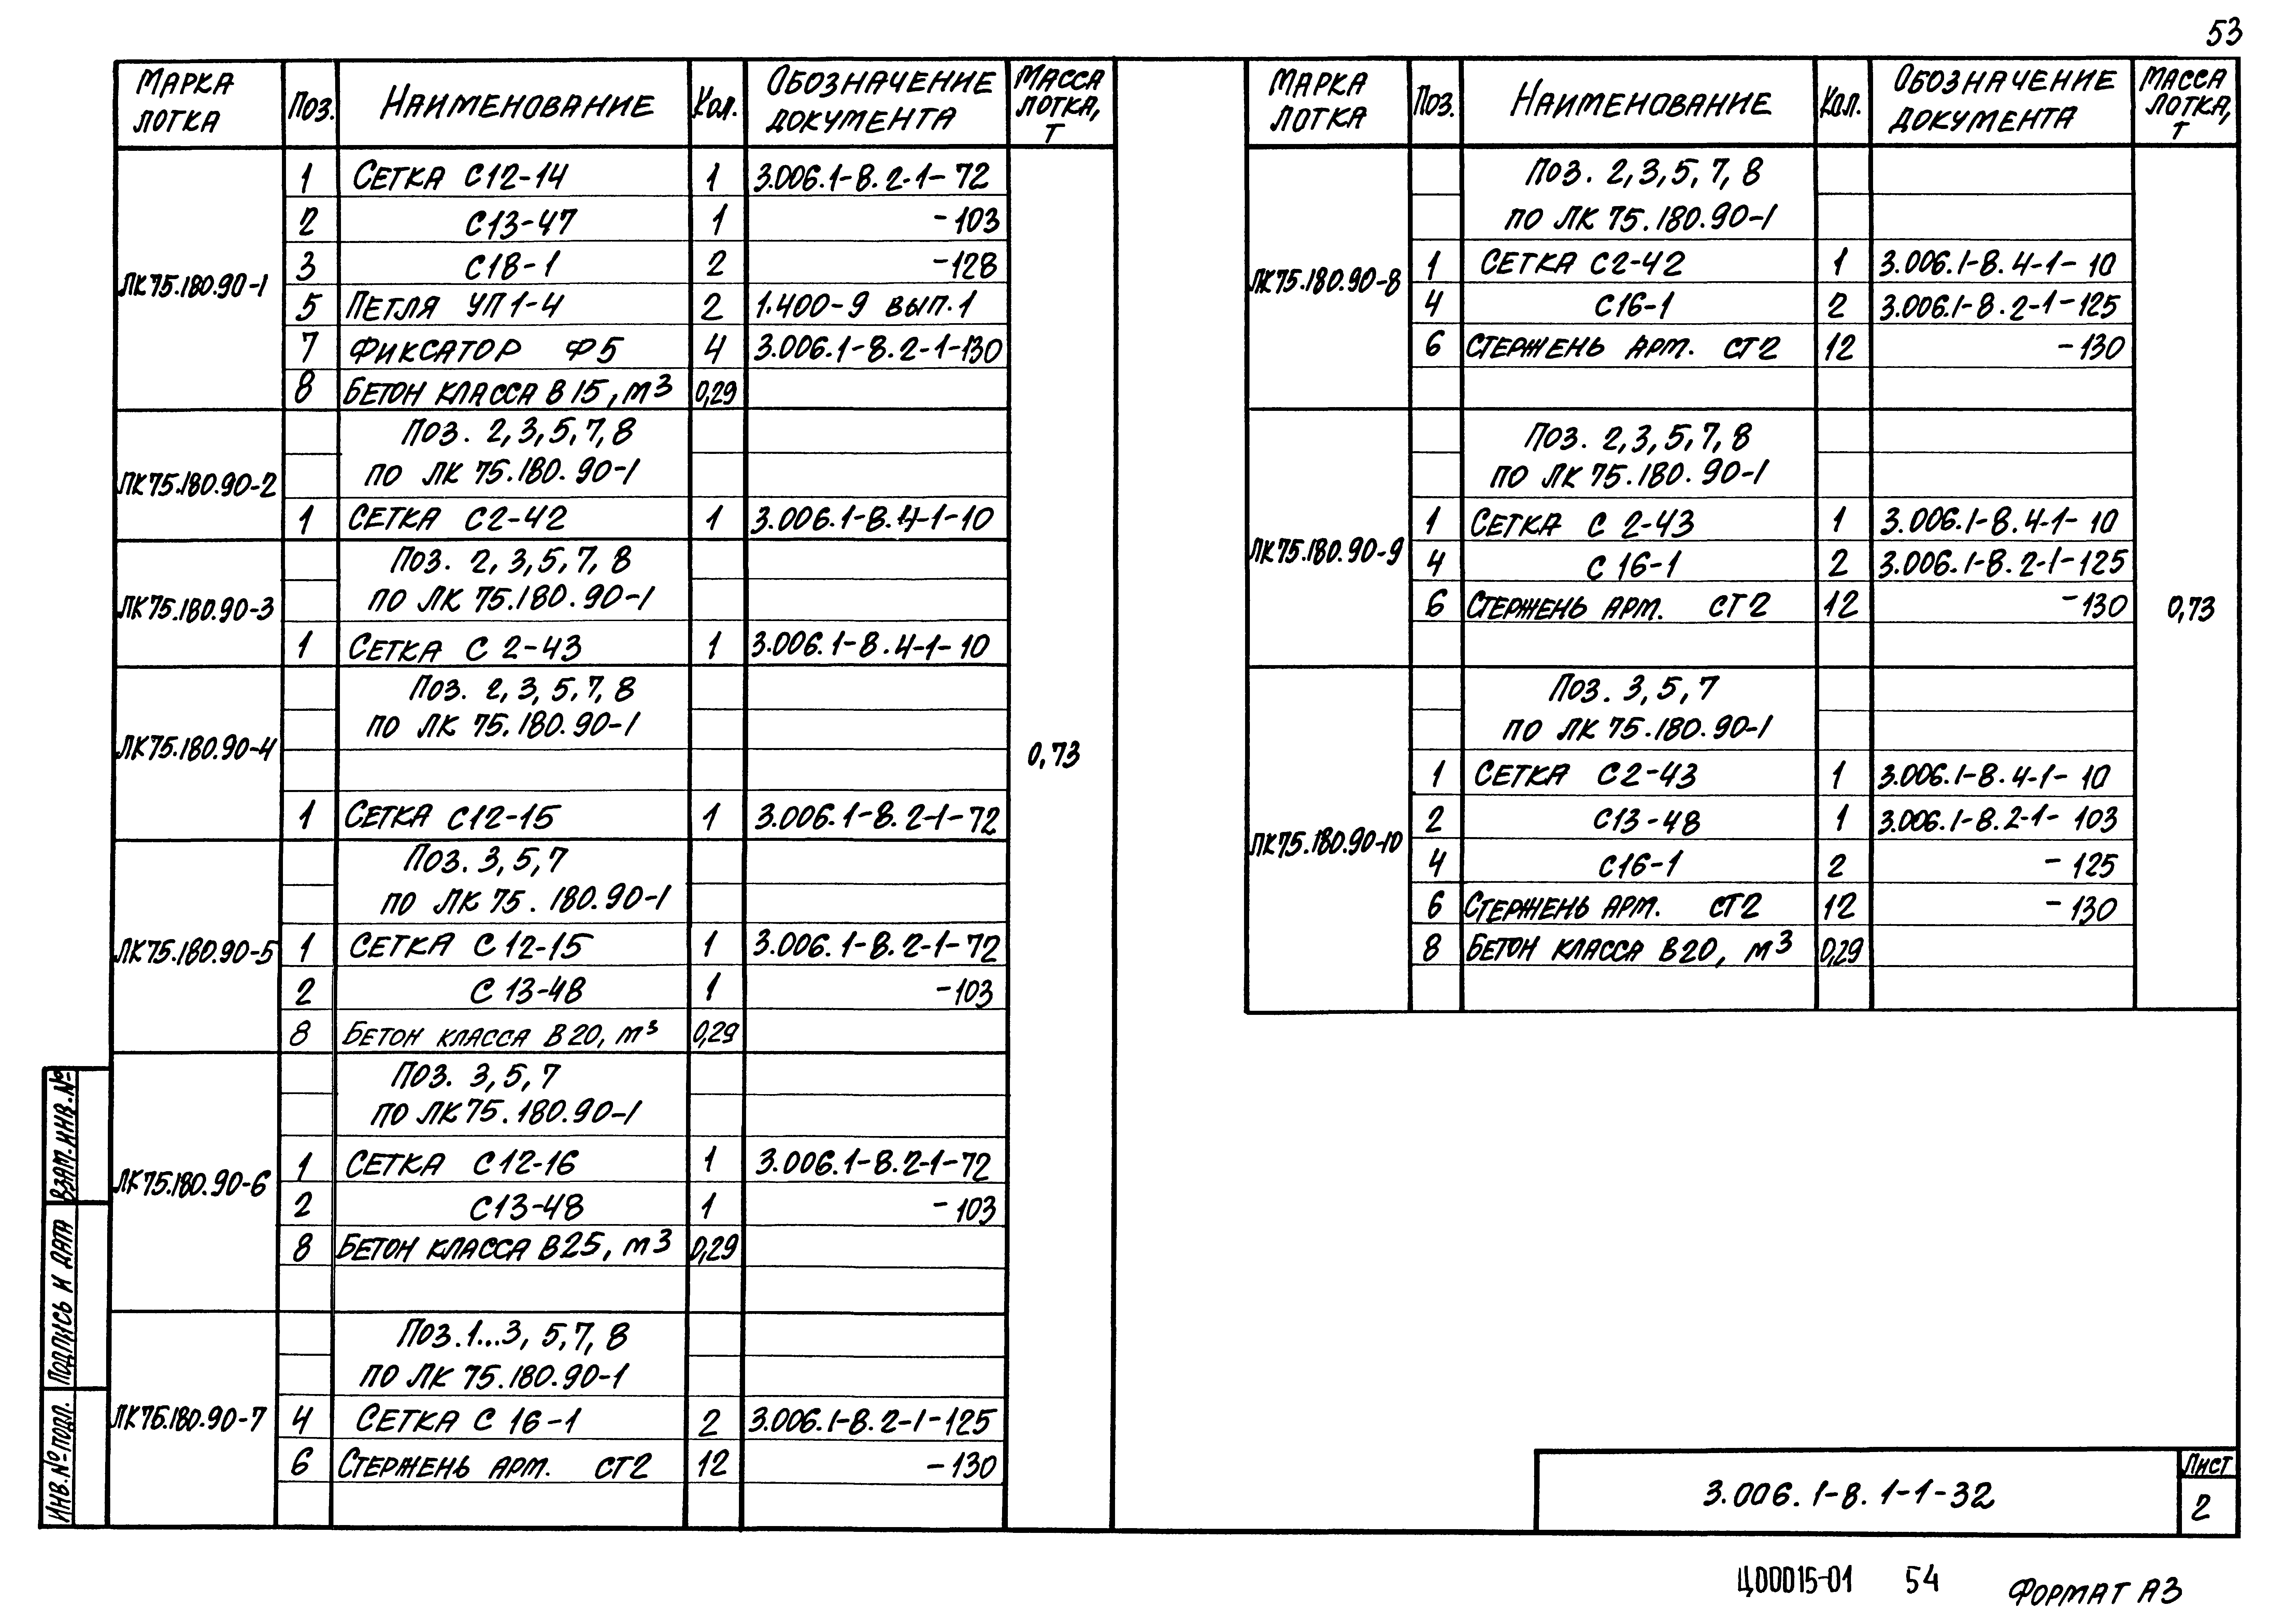 53
МАРКА ЛОТКА | ПОЗ. | НАИМЕНОВАНИЕ | КОЛ. | ОБОЗНАЧЕНИЕ ДОКУМЕНТА | МАССА ЛОТКА, Т
ЛК75.180.90-1
1 СЕТКА С12-14 1 3.006.1-8.2-1-72
2 С13-47 1 -103
3 С18-1 2 -128
5 ПЕТЛЯ УП1-4 2 1.400-9 ВЫП.1
7 ФИКСАТОР Ф5 4 3.006.1-8.2-1-130
8 БЕТОН КЛАССА В15, м3 0,29
ЛК75.180.90-2
ПОЗ. 2,3,5,7,8
ПО ЛК 75.180.90-1
1 СЕТКА С2-42 1 3.006.1-8.4-1-10
ЛК75.180.90-3
ПОЗ. 2,3,5,7,8
ПО ЛК 75.180.90-1
1 СЕТКА С 2-43 1 3.006.1-8.4-1-10
ЛК75.180.90-4
ПОЗ. 2,3,5,7,8
ПО ЛК 75.180.90-1
0,73
1 СЕТКА С12-15 1 3.006.1-8.2-1-72
ЛК75.180.90-5
ПОЗ. 3,5,7
ПО ЛК 75.180.90-1
1 СЕТКА С 12-15 1 3.006.1-8.2-1-72
2 С 13-48 1 -103
8 БЕТОН КЛАССА В20, м3 0,29
ЛК75.180.90-6
ПОЗ. 3,5,7
ПО ЛК75.180.90-1
1 СЕТКА С12-16 1 3.006.1-8.2-1-72
2 С13-48 1 -103
8 БЕТОН КЛАССА В25, м3 0,29
ЛК75.180.90-7
ПОЗ.1...3, 5,7,8
ПО ЛК 75.180.90-1
4 СЕТКА С 16-1 2 3.006.1-8.2-1-125
6 СТЕРЖЕНЬ АРМ. СТ2 12 -130
МАРКА ЛОТКА | ПОЗ. | НАИМЕНОВАНИЕ | КОЛ. | ОБОЗНАЧЕНИЕ ДОКУМЕНТА | МАССА ЛОТКА, Т
ЛК75.180.90-8
ПОЗ. 2,3,5,7,8
ПО ЛК 75.180.90-1
1 СЕТКА С2-42 1 3.006.1-8.4-1-10
4 С16-1 2 3.006.1-8.2-1-125
6 СТЕРЖЕНЬ АРМ. СТ2 12 -130
ЛК75.180.90-9
ПОЗ. 2,3,5,7,8
ПО ЛК 75.180.90-1
1 СЕТКА С 2-43 1 3.006.1-8.4-1-10
4 С 16-1 2 3.006.1-8.2-1-125
6 СТЕРЖЕНЬ АРМ. СТ2 12 -130
0,73
ЛК75.180.90-10
ПОЗ. 3,5,7
ПО ЛК 75.180.90-1
1 СЕТКА С2-43 1 3.006.1-8.4-1-10
2 С13-48 1 3.006.1-8.2-1-103
4 С16-1 2 -125
6 СТЕРЖЕНЬ АРМ. СТ2 12 -130
8 БЕТОН КЛАССА В20, м3 0,29
ВЗАМ.ИНВ.№
ПОДПИСЬ И ДАТА
ИНВ.№ПОДЛ.
3.006.1-8.1-1-32
ЛИСТ
2
Ц00015-01 54
ФОРМАТ А3